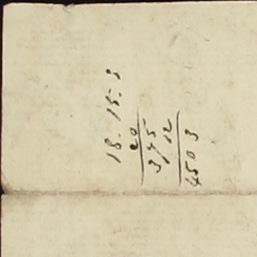 18.15.3
20
375
12
4503